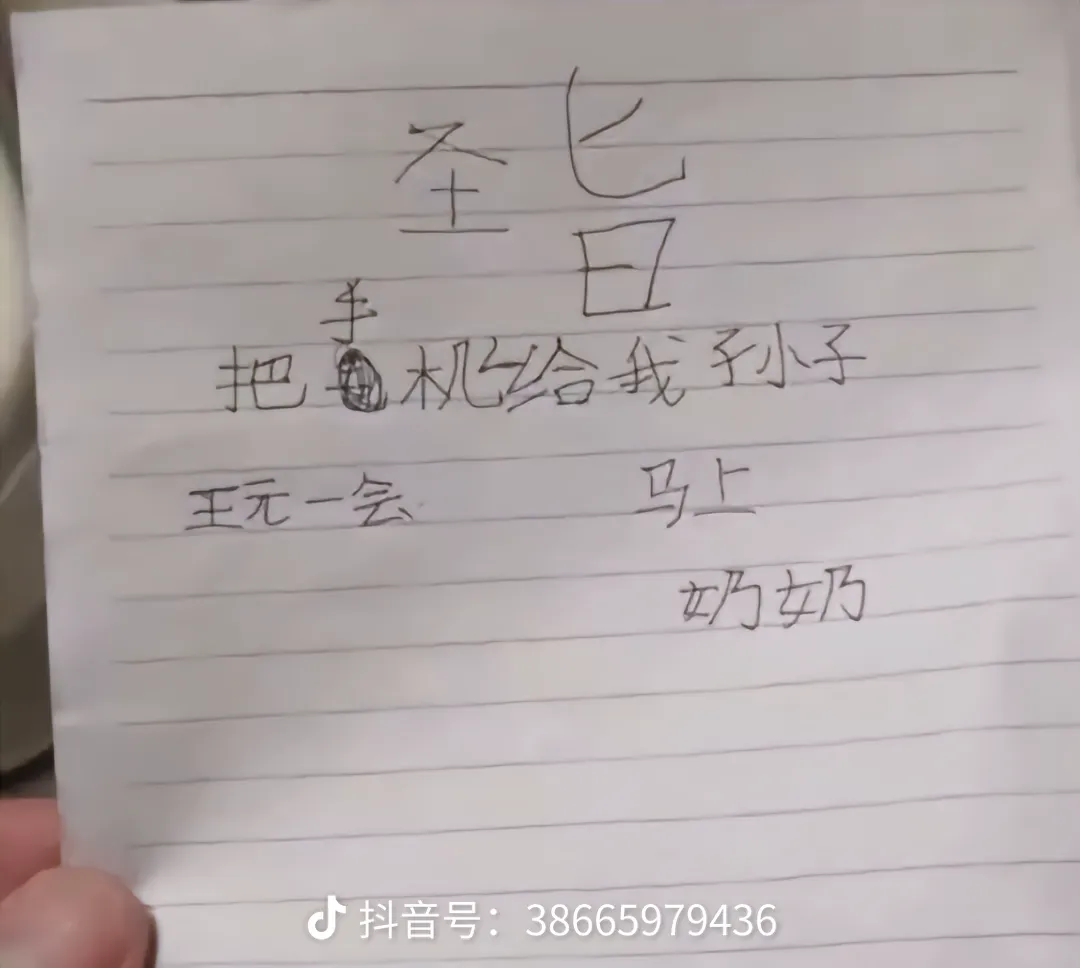 圣旨
把手机给我孙子
王元一会 马上
奶奶
抖音号：38665979436